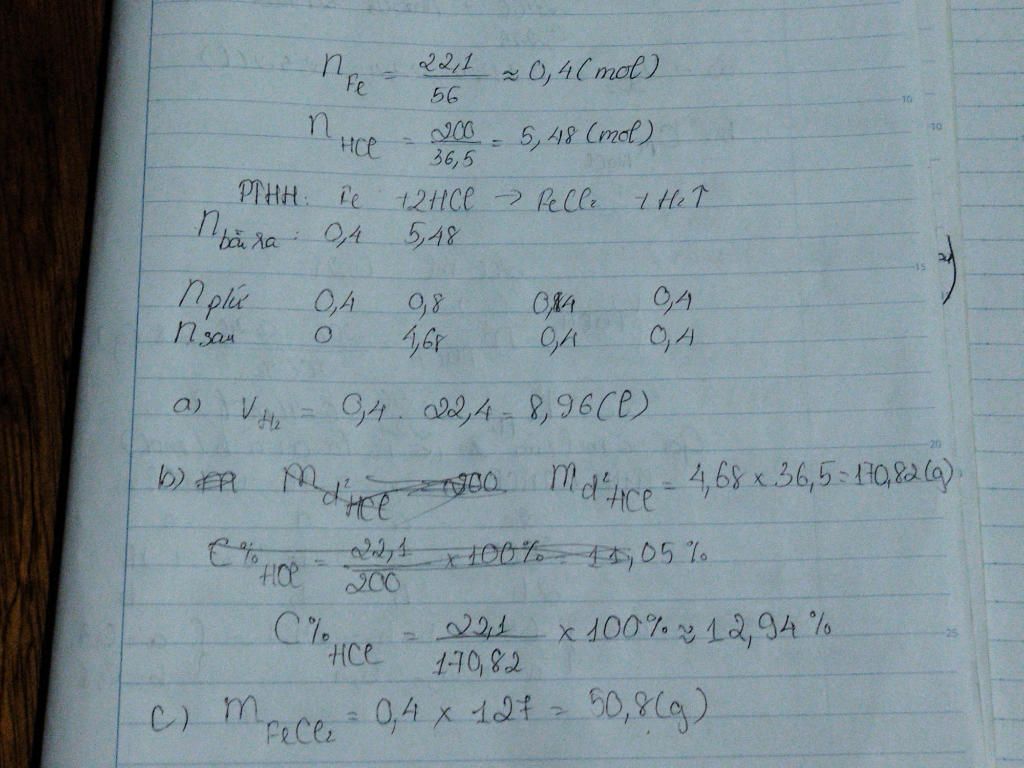 n Fe = 22,1 / 56 ≈ 0,4 (mol)
n HCl = 200 / 36,5 = 5,48 (mol)
PTHH: Fe + 2HCl → FeCl₂ + H₂↑
n bài ra: 0,4 5,48
n pứ 0,4 0,8 0,4 0,4
n sau 0 4,68 0,4 0,4
a) V H₂ = 0,4 . 22,4 = 8,96 (l)
b) m d² HCl = 200 m d² HCl = 4,68 x 36,5 = 170,82 (g)
C% HCl = 22,1 / 200 x 100% = 11,05 %
C% HCl = 22,1 / 170,82 x 100% ≈ 12,94 %
c) m FeCl₂ = 0,4 x 127 = 50,8 (g)
10
10
15
20
25